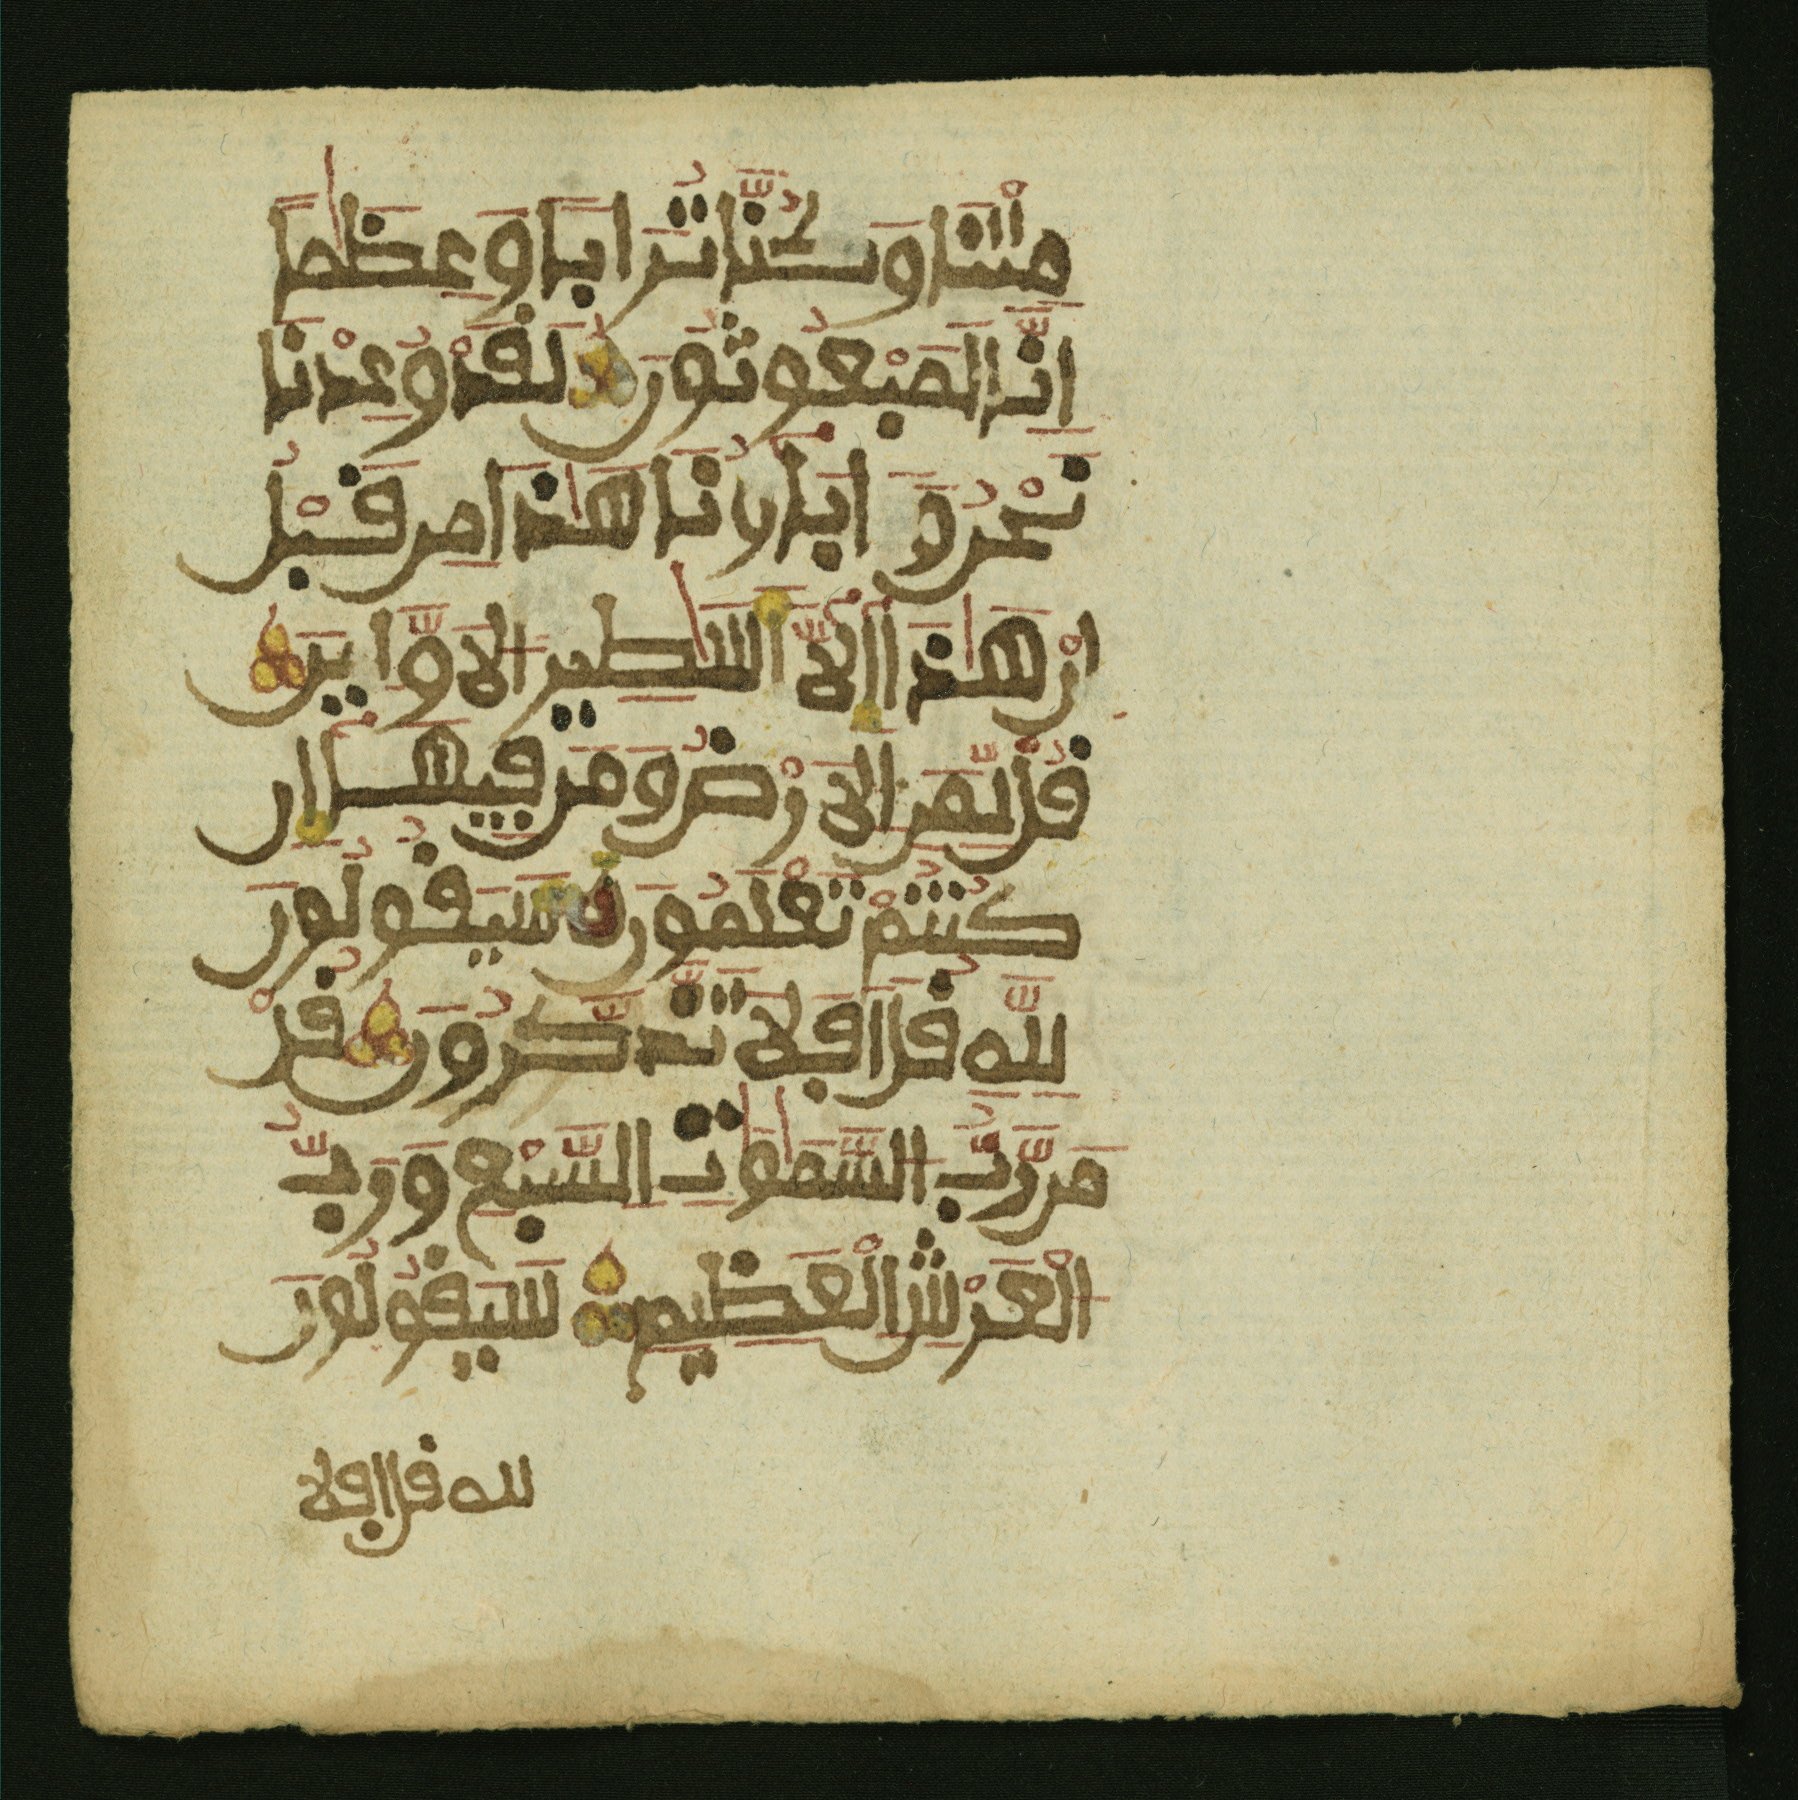 مِتْنَا وَكُنَّا تُرَابًا وَعِظَٰمًا
اِنَّا لَمَبْعُوثُونَ لَقَدْ وُعِدْنَا
نَحْنُ وَءَابَآؤُنَا هَٰذَا مِن قَبْلُ
اِنْ هَٰذَآ إِلَّآ أَسَٰطِيرُ الَاوَّلِينَ
قُل لِّمَنِ الَارْضُ وَمَن فِيهَآ إِن
كُنتُمْ تَعْلَمُونَ سَيَقُولُونَ
لِلَّهِ قُلَ اَفَلَا تَذَّكَّرُونَ قُلْ
مَن رَّبُّ السَّمَٰوَٰتِ السَّبْعِ وَرَبُّ
الْعَرْشِ الْعَظِيمِ سَيَقُولُونَ
لله قل افلا